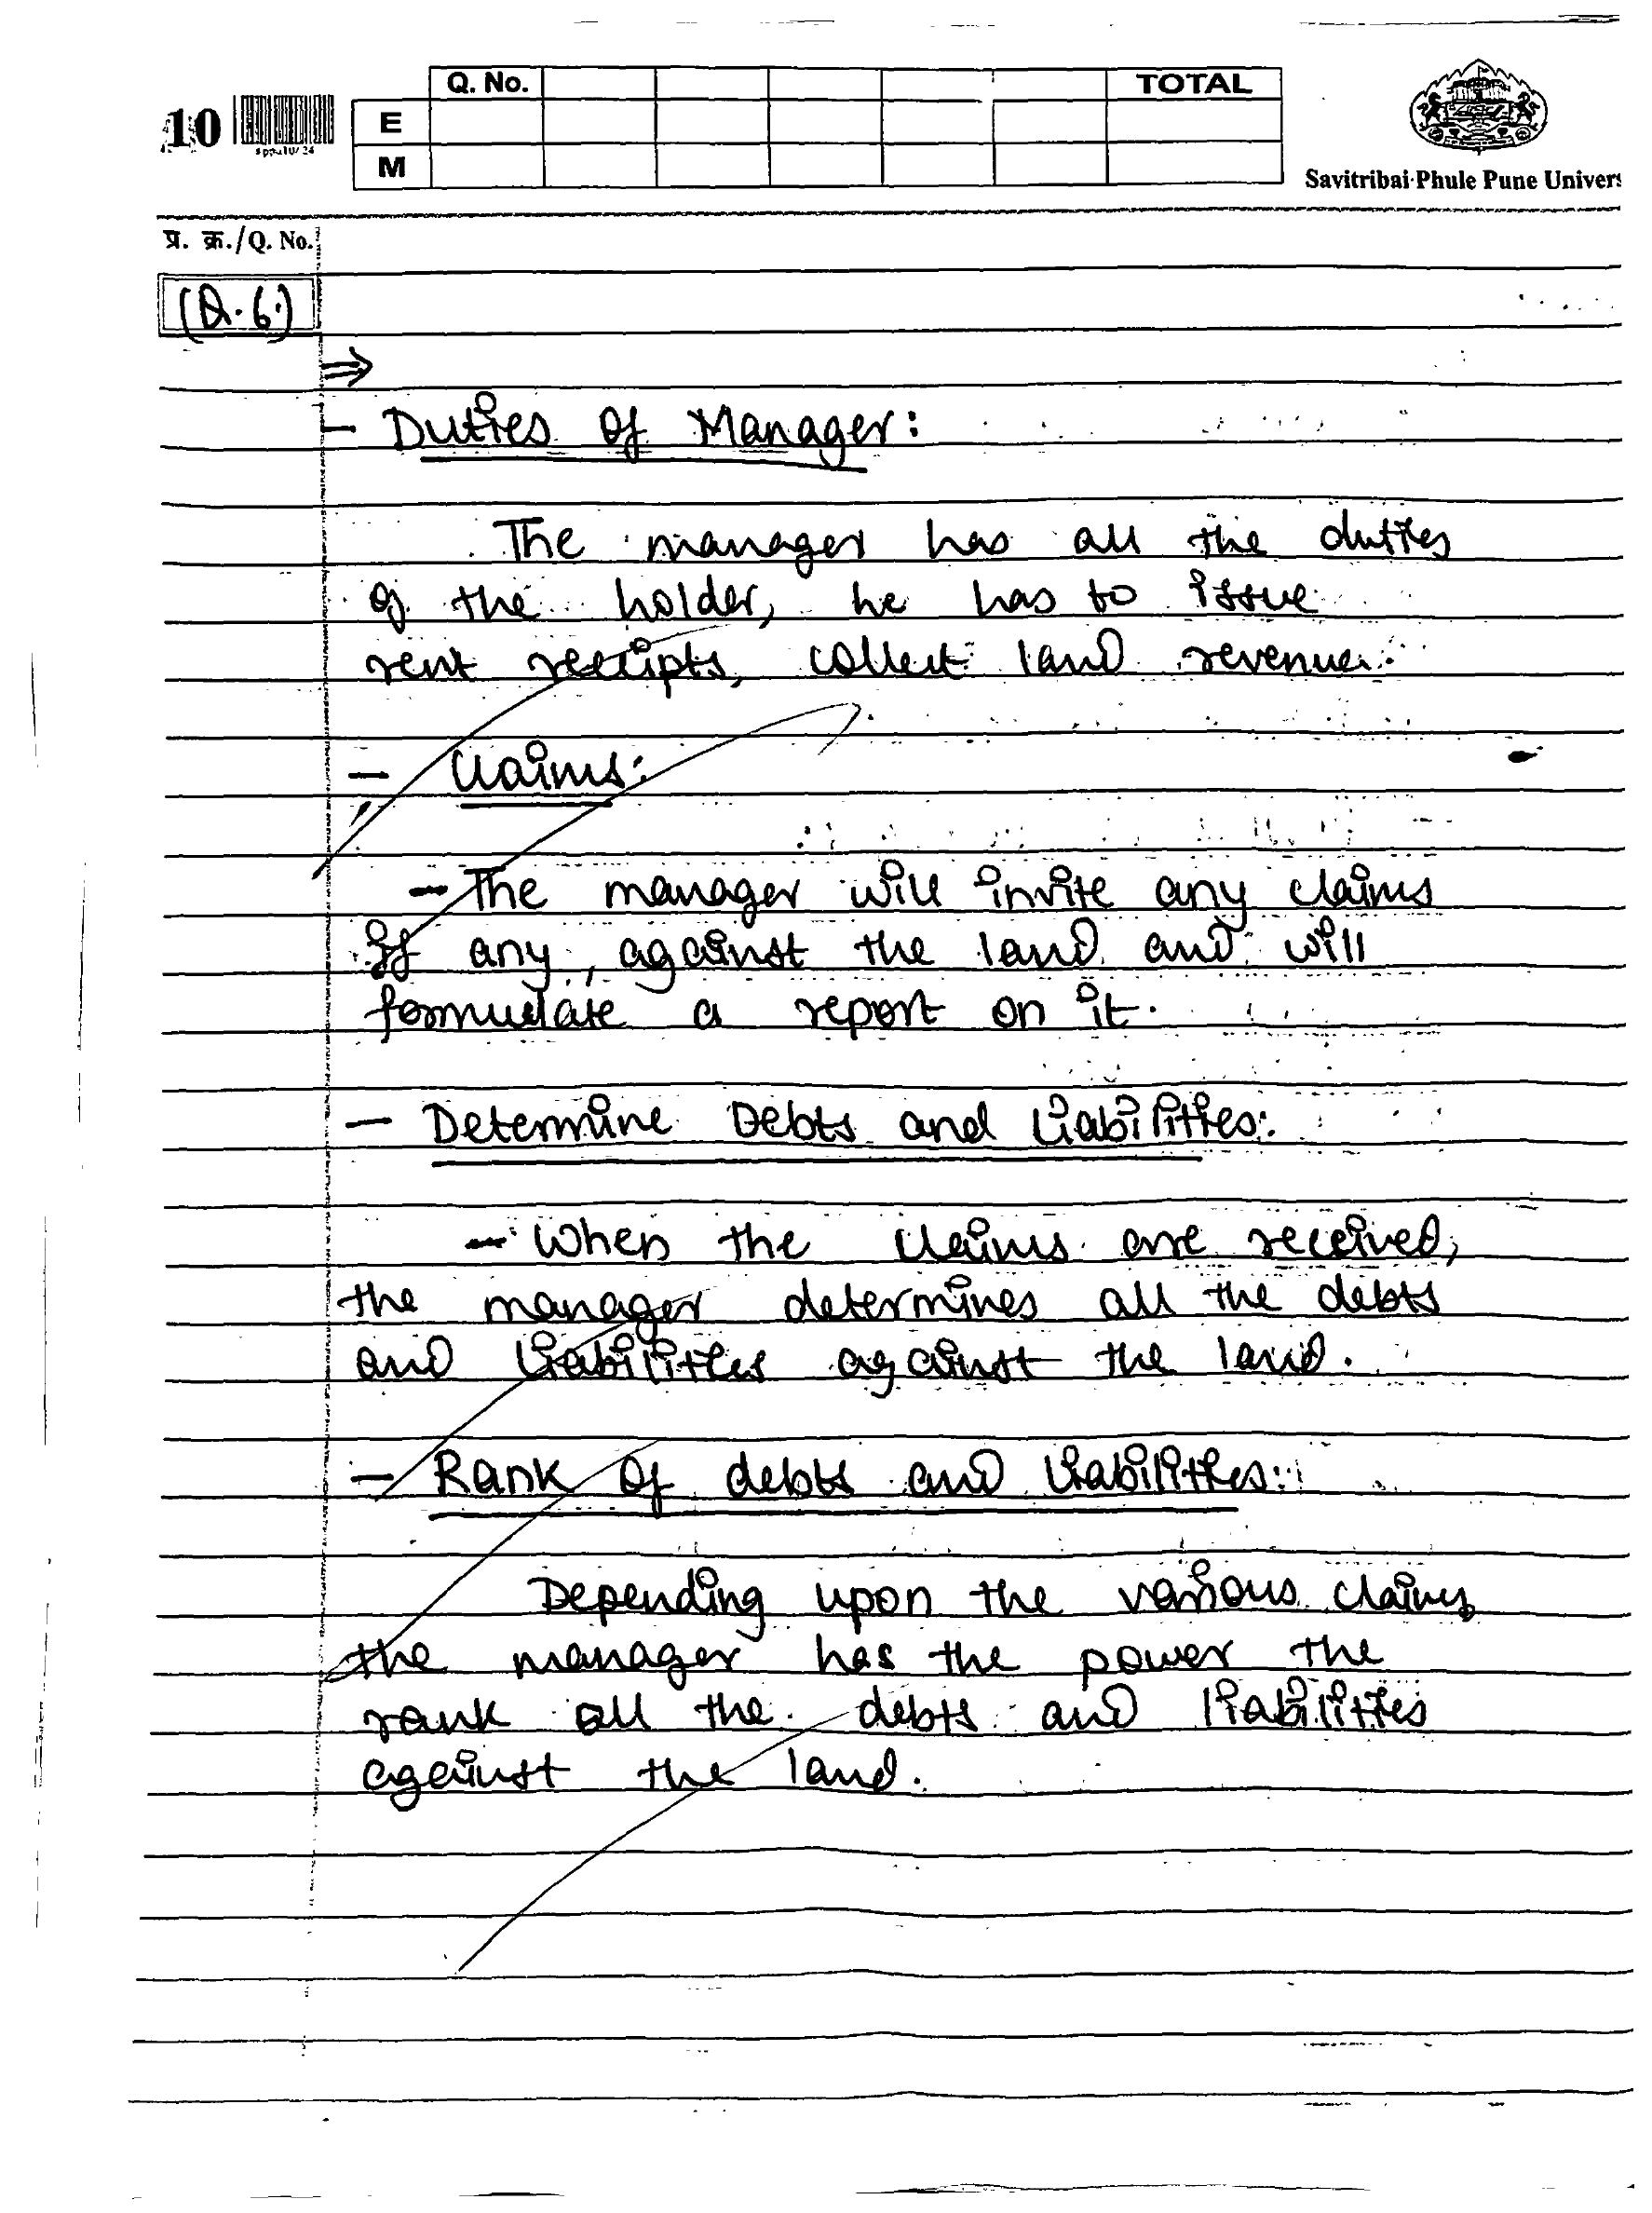 Q. No. TOTAL
10 E
sppu10/24
M
Savitribai Phule Pune Univers
प्र. क्र./Q. No.
(Q.6.)
⇒
- Duties of Manager:
The manager has all the duties
of the holder, he has to issue
rent receipts, collect land revenue.
- Claims:
- The manager will invite any claims
if any, against the land and will
formulate a report on it.
- Determine Debts and Liabilities:
- When the claims are received,
the manager determines all the debts
and liabilities against the land.
- Rank of debts and liabilities:
Depending upon the various claims
the manager has the power the
rank all the debts and liabilities
against the land.